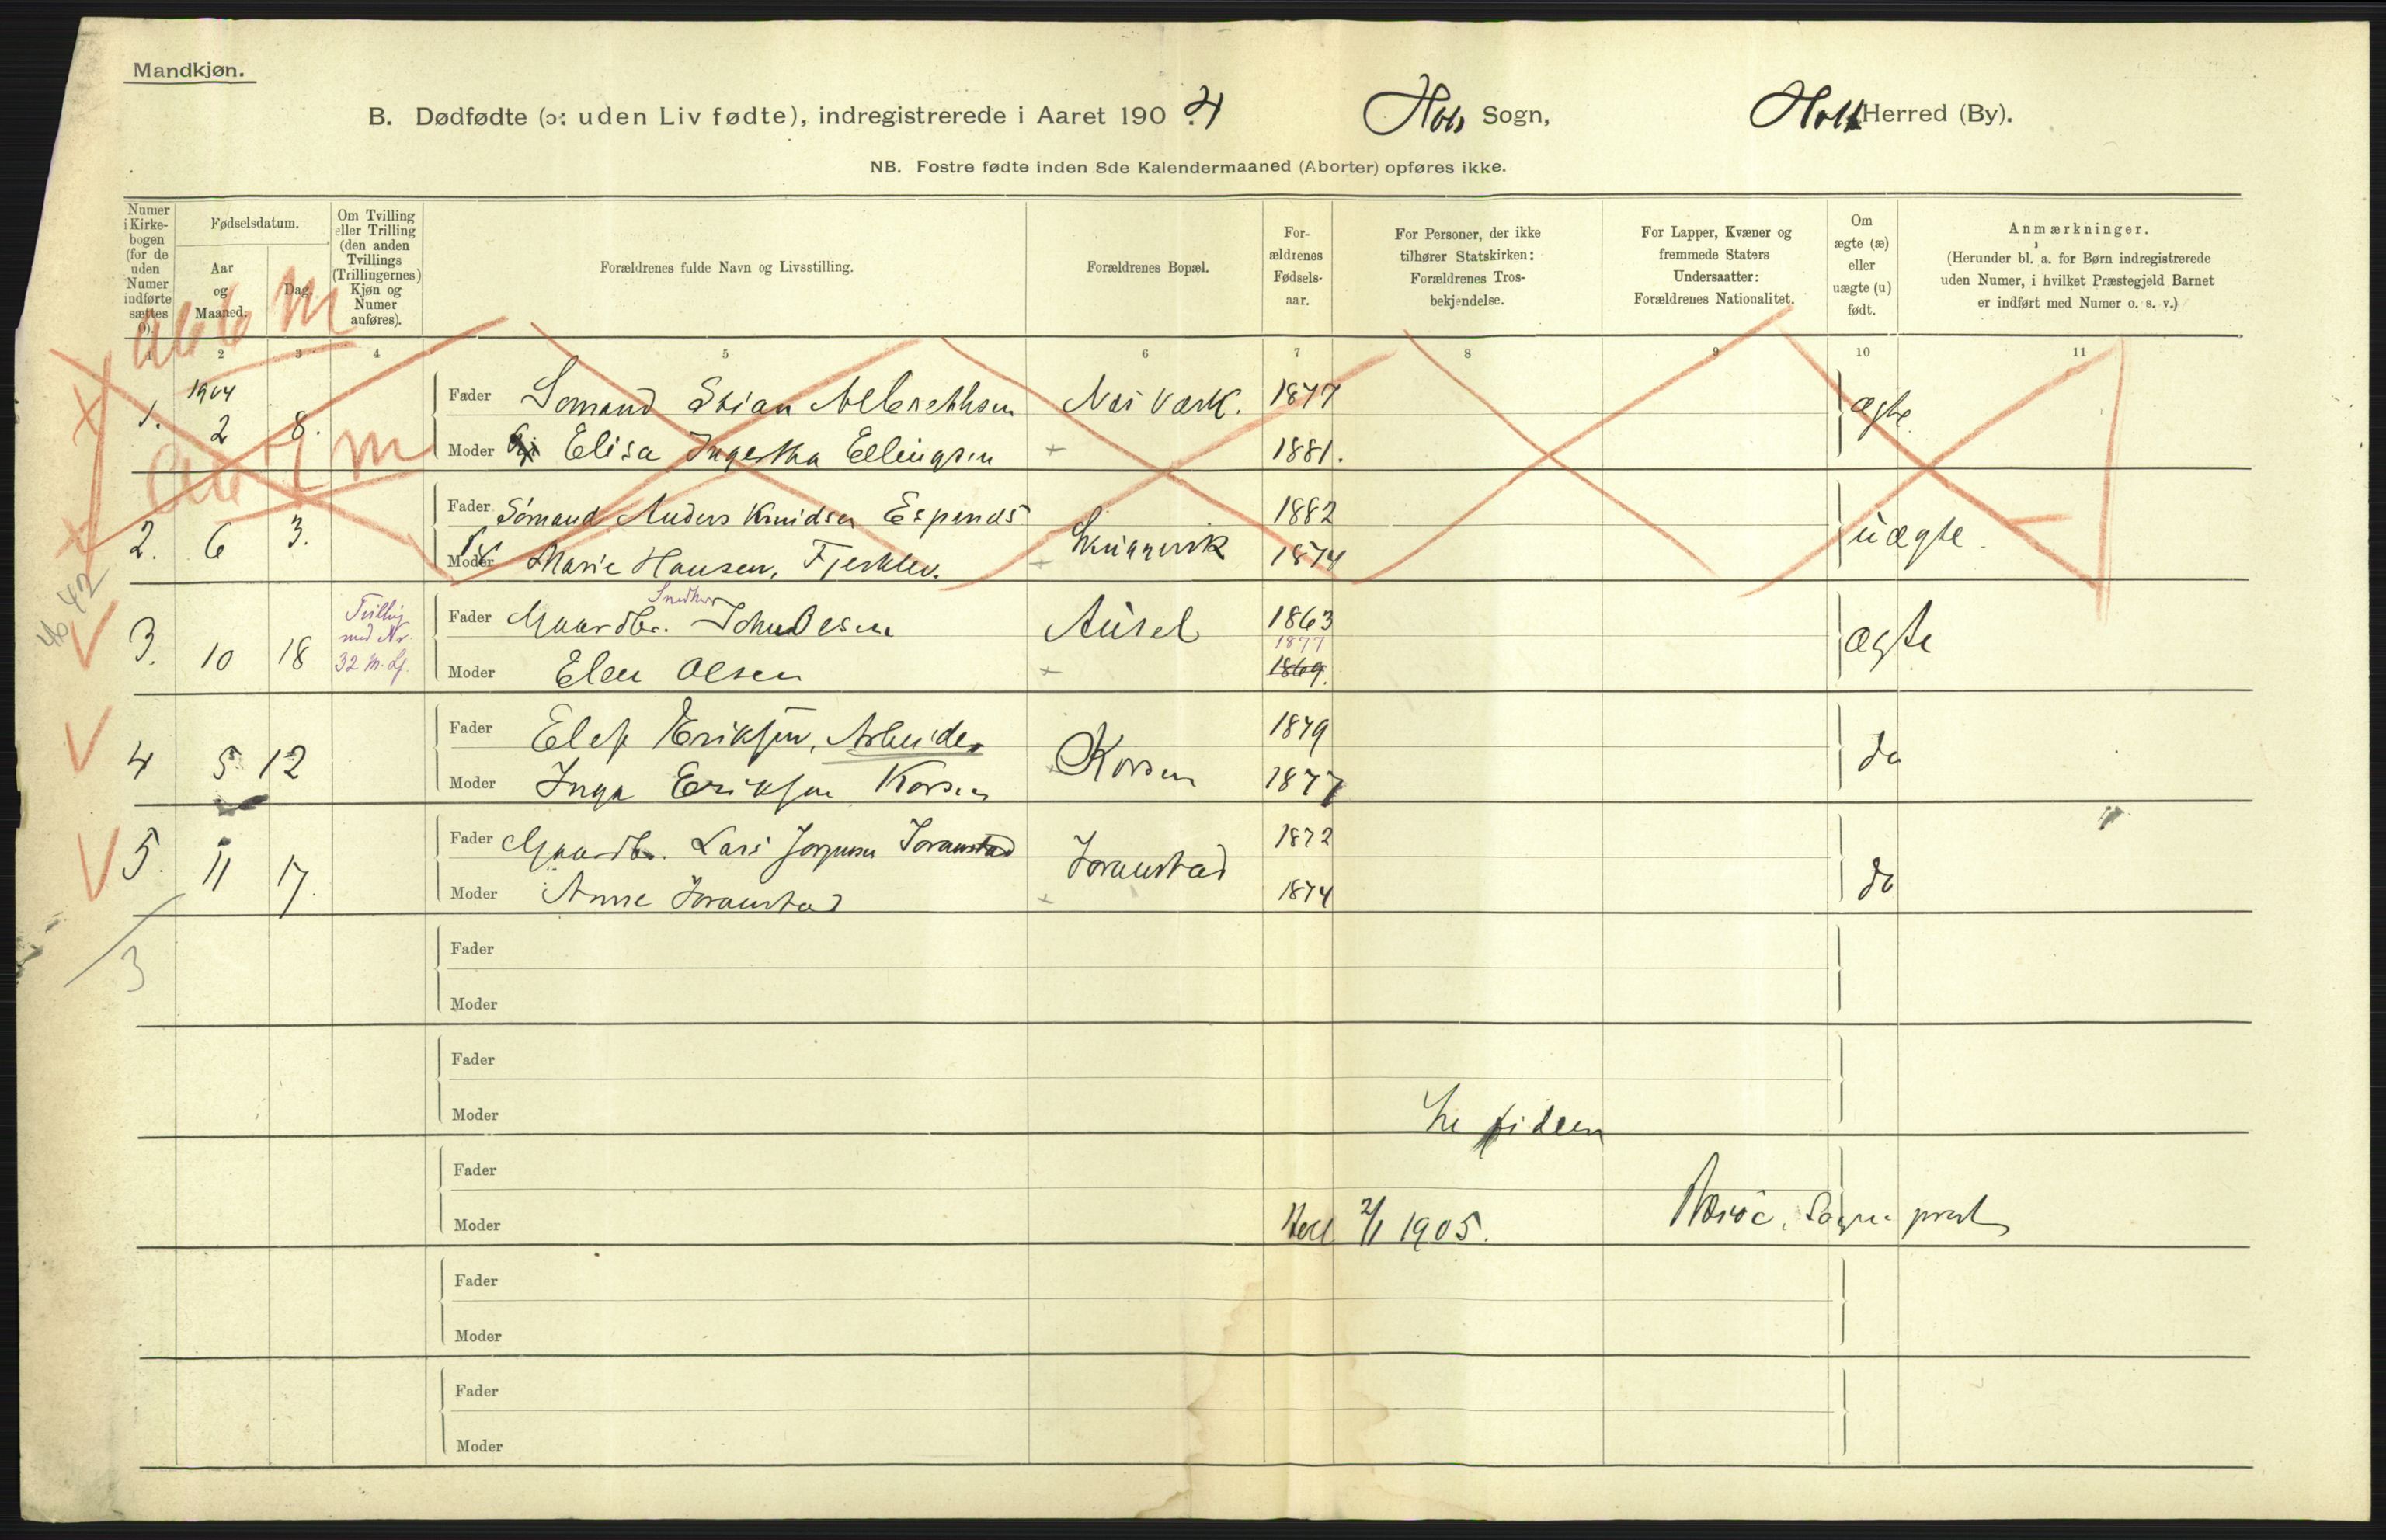 Mandkjøn.
B. Dødfødte (ɔ: uden Liv fødte), indregistrerede i Aaret 1904 Holt Sogn, Holt Herred (By).
NB. Fostre fødte inden 8de Kalendermaaned (Aborter) opføres ikke.
Numer i Kirke-bogen (for de uden Numer indførte sættes 0).
Fødselsdatum.
Aar og Maaned.
Dag.
Om Tvilling eller Trilling (den anden Tvillings (Trillingernes) Kjøn og Numer anføres).
Forældrenes fulde Navn og Livsstilling.
Forældrenes Bopæl.
For-ældrenes Fødsels-aar.
For Personer, der ikke tilhører Statskirken: Forældrenes Tros-bekjendelse.
For Lapper, Kvæner og fremmede Staters Undersaatter: Forældrenes Nationalitet.
Om ægte (æ) eller uægte (u) født.
Anmærkninger.
(Herunder bl. a. for Børn indregistrerede uden Numer, i hvilket Præstegjeld Barnet er indført med Numer o. s. v.)
1 2 3 4 5 6 7 8 9 10 11
1904
1. 2 8. Fader Sømand Stian Albrethsen Næs Værk. 1877 ægte
Moder Elisa Ingertha Ellingsen 1881.
2. 6 3. Fader Sømand Anders Knudsen Espenæs 1882 uægte.
Moder Marie Hansen, Fjerklev. 1874
3. 10 18 Tvilling med Nr. 32 M. Lf. Fader Gaardbr. Snedker John Olsen Ausel 1863 ægte
Moder Elen Olsen 1877 1869.
4 5 12 Fader Elef Eriksen, Arbeider Korsen 1879 do
Moder Inga Eriksen Korsen 1877
5. 11 17. Fader Gaardbr. Lars Jørgensen Joranstad Joranstad 1872 do
Moder Anne Joranstad 1874
3
Fader
Moder
Fader
Moder
Fader
Moder Holt 2/1 1905. Sognepræst
Fader
Moder
Fader
Moder